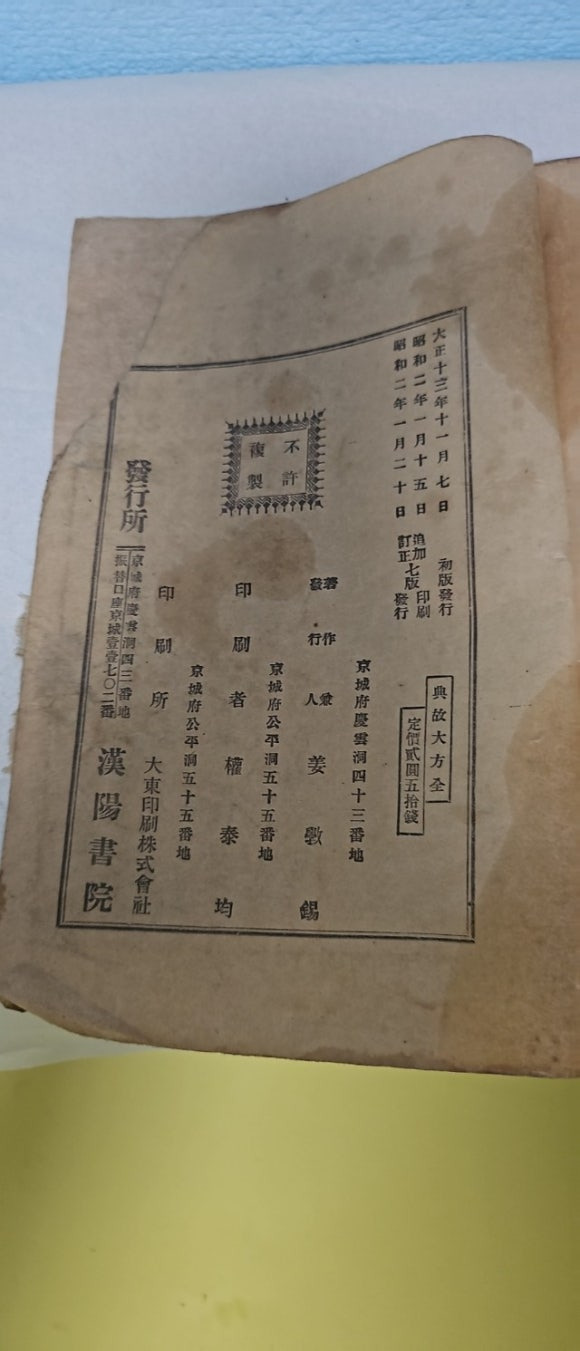 大正十三年十一月七日　初版發行
昭和二年一月十五日　追加七版印刷
昭和二年一月二十日　訂正七版發行
典故大方全
定價貳圓五拾錢
不許
複製
京城府慶雲洞四十三番地
著作兼發行人　姜斅錫
京城府公平洞五十五番地
印刷者　權泰均
京城府公平洞五十五番地
印刷所　大東印刷株式會社
發行所　京城府慶雲洞四三番地　漢陽書院
振替口座京城壹壹七〇二番